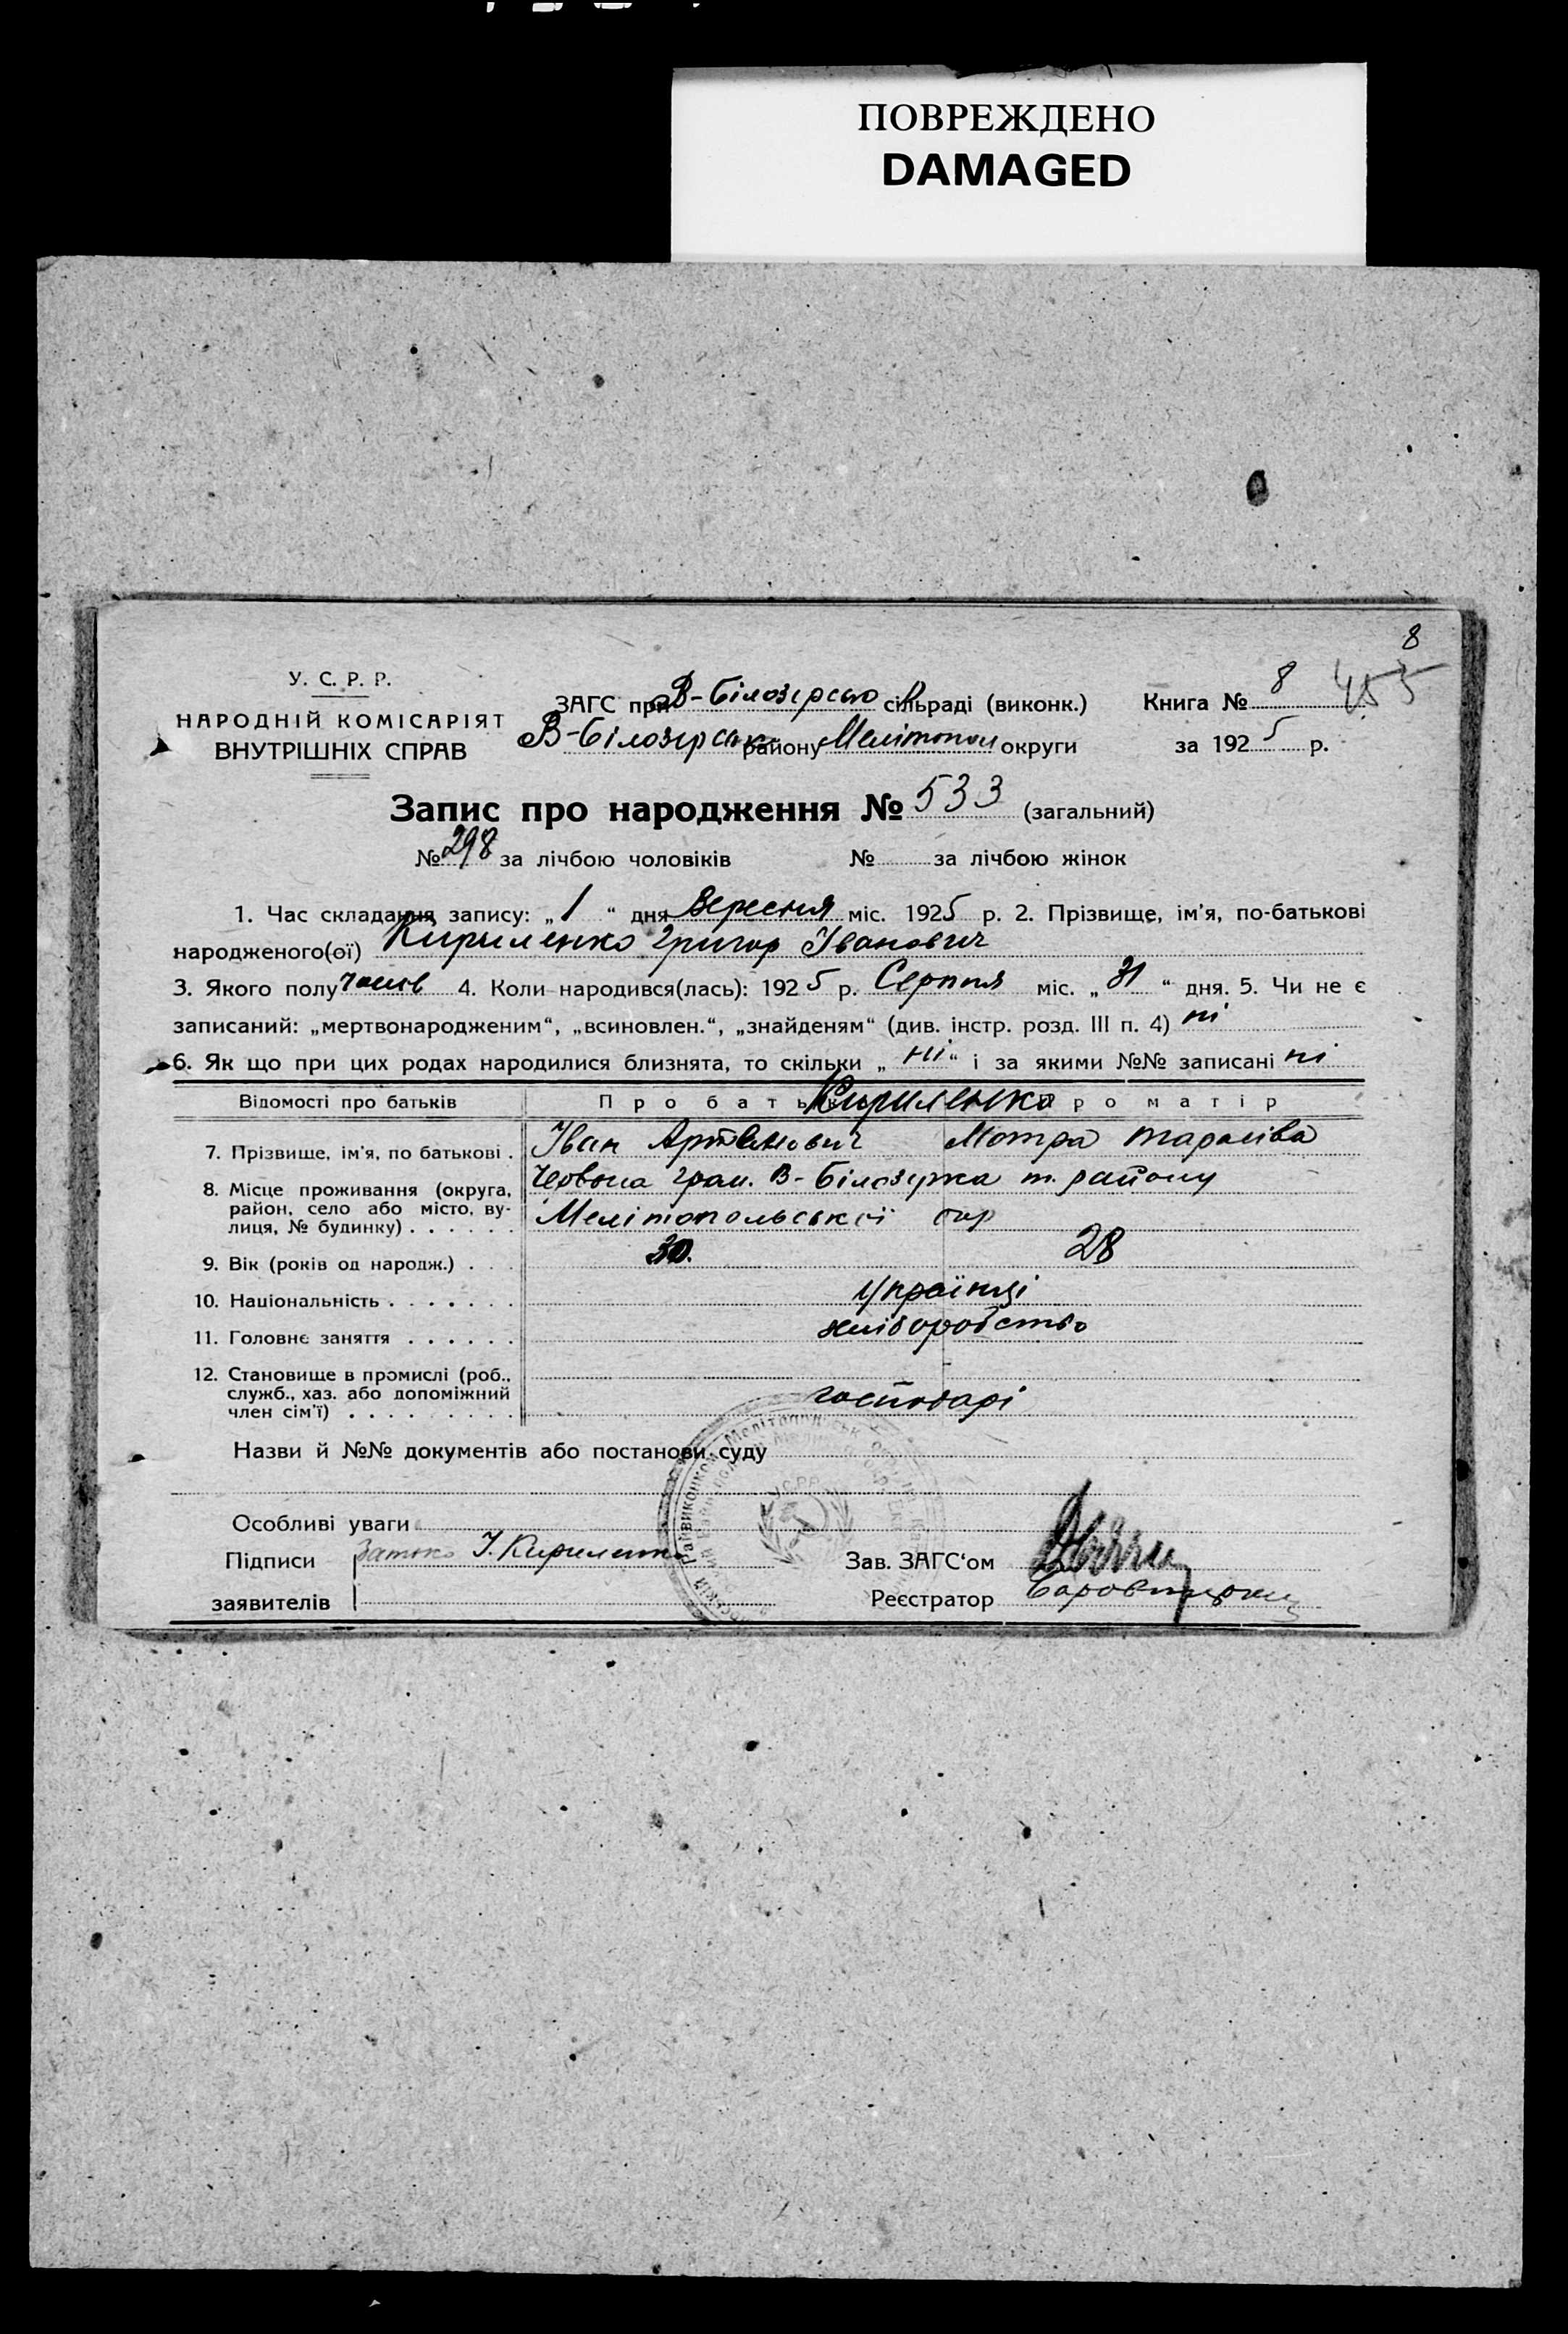 ПОВРЕЖДЕНО
DAMAGED
8
У. С. Р. Р.
НАРОДНІЙ КОМІСАРІЯТ
ВНУТРІШНІХ СПРАВ
ЗАГС при В-Білозерсько сільраді (виконк.)
В-Білозерськ району Мелітопол округи
Книга № 8 455
за 1925 р.
Запис про народження № 533 (загальний)
№ 298 за лічбою чоловіків № за лічбою жінок
1. Час складання запису: „1“ дня Вересня міс. 1925 р. 2. Прізвище, ім'я, по-батькові
народженого(ої) Кириленко Григор Іванович
3. Якого полу чолов 4. Коли народився(лась): 1925 р. Серпня міс. „31“ дня. 5. Чи не є
записаний: „мертвонародженим“, „всиновлен.“, „знайденям“ (див. інстр. розд. III п. 4) ні
6. Як що при цих родах народилися близнята, то скільки „ні“ і за якими №№ записані ні
Відомості про батьків Про батька Про матір
Кириленко
7. Прізвище, ім'я, по батькові . Іван Артемович Мотря Тарасівна
8. Місце проживання (округа, район, село або місто, вулиця, № будинку) . . . . . . Червона грам. В-Білозерка т. району
Мелітопольської окр
9. Вік (років од народж.) . . . 30. 28
10. Національність . . . . . . . Українці
11. Головне заняття . . . . . . хліборобство
12. Становище в промислі (роб., служб., хаз. або допоміжний член сім'ї) . . . . . . . . . господарі
Назви й №№ документів або постанови суду
Особливі уваги
Підписи І. Кириленко
заявителів
Зав. ЗАГС'ом
Реєстратор
УСРР